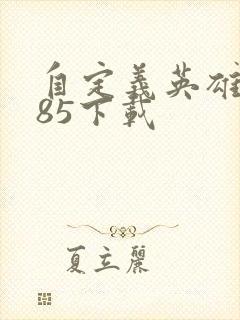 自定義英雄
85下載
夏立麗